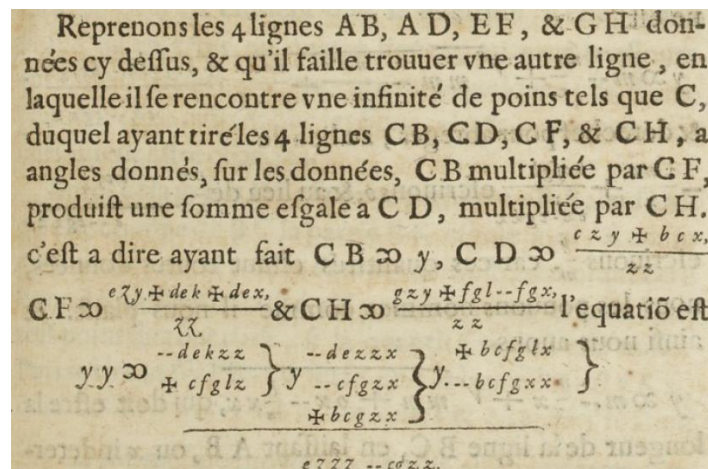 Reprenons les 4 lignes AB, AD, EF, & GH don-
nées cy deſſus, & qu'il faille trouuer vne autre ligne, en
laquelle il ſe rencontre vne infinité de poins tels que C,
duquel ayant tiré les 4 lignes CB, CD, CF, & CH, a
angles donnés, ſur les données, CB multipliée par CF,
produiſt une ſomme eſgale a CD, multipliée par CH.
c'eſt a dire ayant fait CB ∞ y, CD ∞ czy ✠ bcx, / zz
CF ∞ ezy ✠ dek ✠ dex, / zz & CH ∞ gzy ✠ fgl -- fgx, / zz l'equatiõ eſt
-- dekzz } -- dezzx } ✠ bcfglx }
yy ∞ ✠ cfglz } y -- cfgzx } y -- bcfgxx }
✠ bcgzx
ezzz -- cgzz.